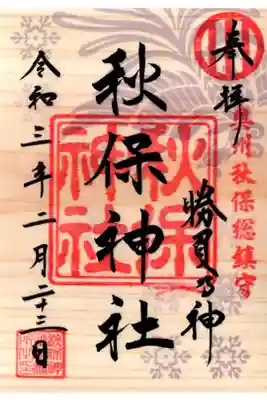 奉拝
奥州秋保総鎮守
勝負の神
秋保神社
秋保神社
令和三年二月二十三日